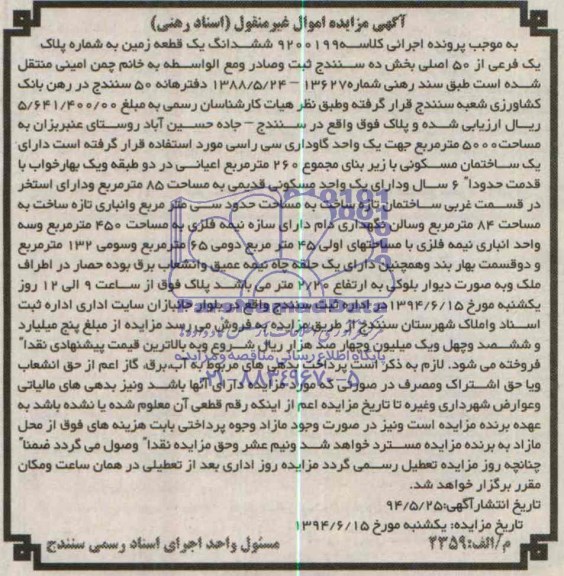 آگهی مزایده اموال غیرمنقول (اسناد رهنی)
به موجب پرونده اجرائی کلاسه ۹۲۰۰۱۹۹ ششدانگ یک قطعه زمین به شماره پلاک
یک فرعی از ۵۰ اصلی بخش ده سنندج ثبت وصادر ومع الواسطه به خانم چمن امینی منتقل
شده است طبق سند رهنی شماره ۱۳۶۲۷ – ۱۳۸۸/۵/۲۴ دفترهانه ۵۰ سنندج در رهن بانک
کشاورزی شعبه سنندج قرار گرفته وطبق نظر هیات کارشناسان رسمی به مبلغ ۵/۶۴۱/۴۰۰/۰۰
ریال ارزیابی شده و پلاک فوق واقع در سنندج – جاده حسین آباد روستای عنبربزان به
مساحت ۵۰۰۰ مترمربع جهت یک واحد گاوداری سی راسی مورد استفاده قرار گرفته است دارای
یک ساختمان مسکونی با زیر بنای مجموع ۲۶۰ مترمربع اعیانی در دو طبقه ویک بهارخواب با
قدمت حدودا" ۶ سال ودارای یک واحد مسکونی قدیمی به مساحت ۸۵ مترمربع ودارای استخر
در قسمت غربی ساختمان تازه ساخت به مساحت حدود سی متر مربع وانباری تازه ساخت به
مساحت ۸۴ مترمربع وسالن نگهداری دام دارای سازه نیمه فلزی به مساحت ۴۵۰ مترمربع وسه
واحد انباری نیمه فلزی با مساحتهای اولی ۴۵ متر مربع دومی ۶۵ مترمربع وسومی ۱۳۲ مترمربع
و دوقسمت بهار بند وهمچنین دارای یک حلقه چاه نیمه عمیق وانشعاب برق بوده حصار در اطراف
ملک وبه صورت دیوار بلوکی به ارتفاع ۲/۲۰ متر می باشد پلاک فوق از ساعت ۹ الی ۱۲ روز
یکشنبه مورخ ۱۳۹۴/۶/۱۵ در اداره ثبت سنندج واقع در بلوار جانبازان سایت اداری اداره ثبت
اسناد واملاک شهرستان سنندج از طریق مزایده به فروش می رسد مزایده از مبلغ پنج میلیارد
و ششصد وچهل ویک میلیون وچهار صد هزار ریال شروع وبه بالاترین قیمت پیشنهادی نقدا"
فروخته می شود. لازم به ذکر است پرداخت بدهی های مربوط به آب،برق، گاز اعم از حق انشعاب
ویا حق اشتراک ومصرف در صورتی که مورد مزایده دارای آنها باشد ونیز بدهی های مالیاتی
وعوارض شهرداری وغیره تا تاریخ مزایده اعم از اینکه رقم قطعی آن معلوم شده یا نشده باشد به
عهده برنده مزایده است ونیز در صورت وجود مازاد وجوه پرداختی بابت هزینه های فوق از محل
مازاد به برنده مزایده مسترد خواهد شد ونیم عشر وحق مزایده نقدا" وصول می گردد ضمنا"
چنانچه روز مزایده تعطیل رسمی گردد مزایده روز اداری بعد از تعطیلی در همان ساعت ومکان
مقرر برگزار خواهد شد.
تاریخ انتشارآگهی:۹۴/۵/۲۵
تاریخ مزایده: یکشنبه مورخ ۱۳۹۴/۶/۱۵
م/الف:۲۳۵۹ مسئول واحد اجرای اسناد رسمی سنندج
ParsNamadData
پایگاه اطلاع رسانی مناقصه و مزایده
۰۲۱-۸۸۳۴۹۶۷۰-۵